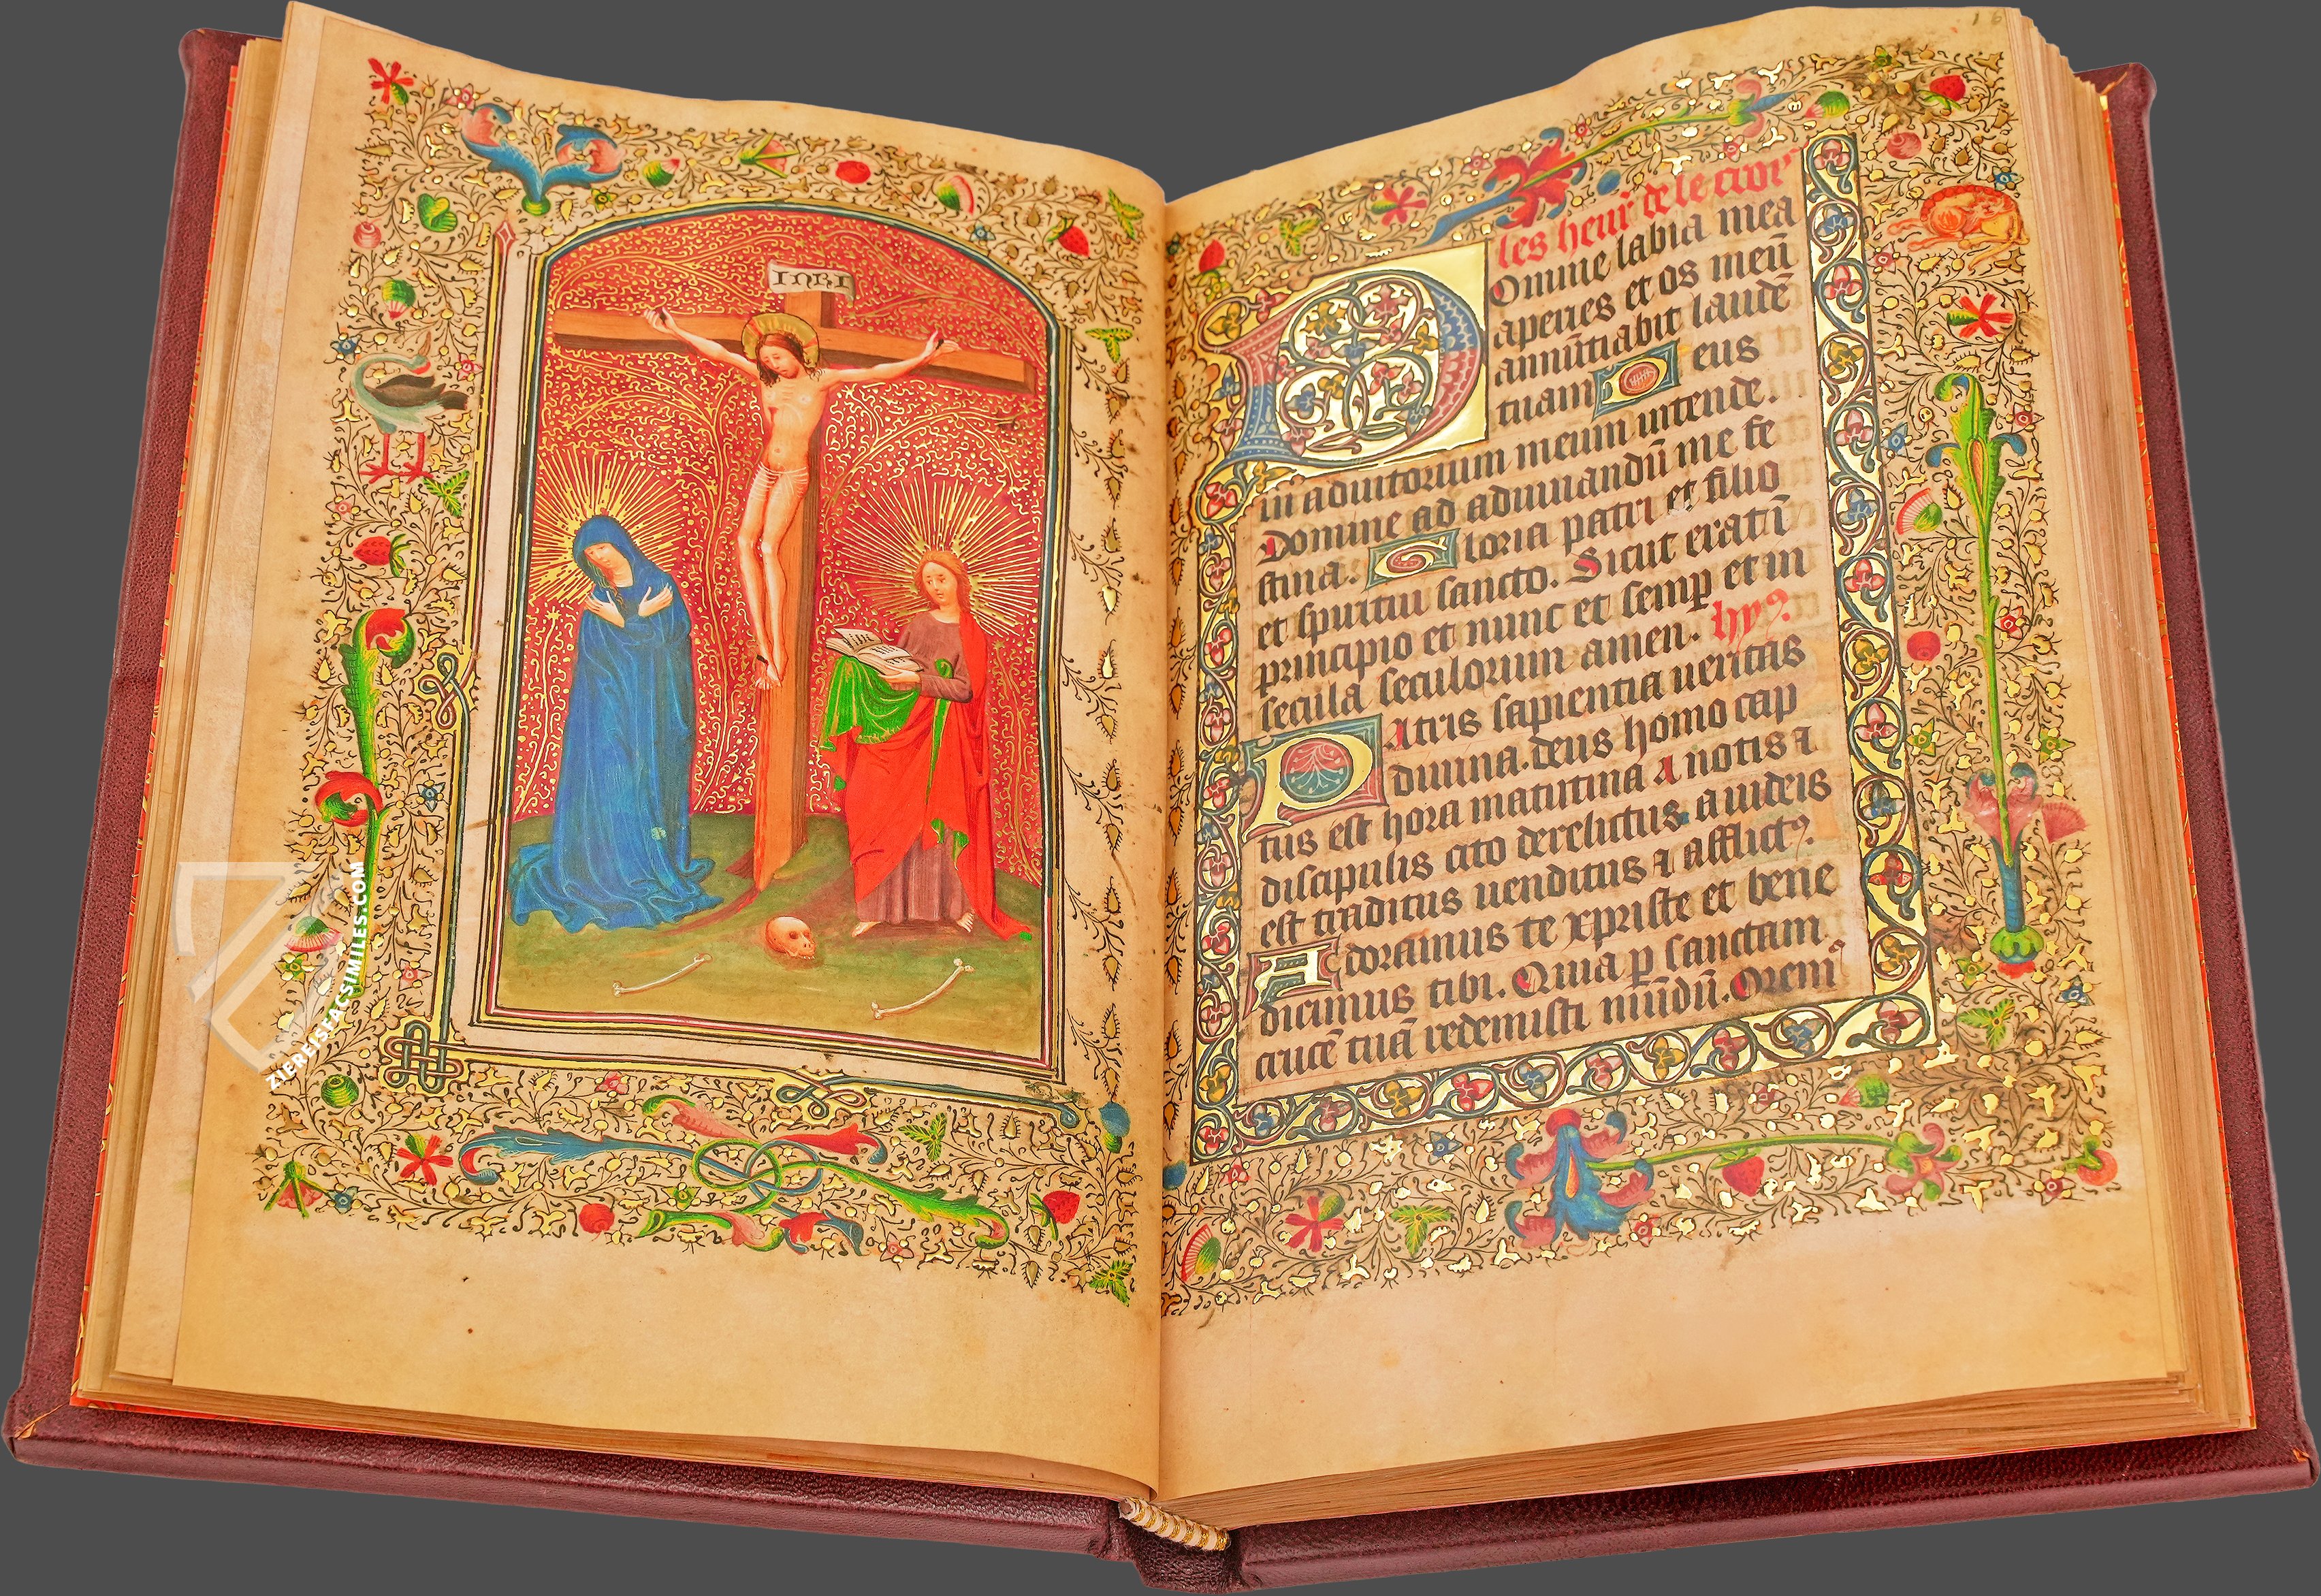 INRI
16
les heur de le croix
Domine labia mea
aperies et os meū
annūtiabit laudē
tuam Deus
in adiutorium meum intende.
Domine ad adiuuandū me fe
stina. Gloria patri et filio
et spiritui sancto. Sicut erat ī
principio et nunc et semp et in
secula seculorum amen. hy9
Patris sapientia ueritas
diuina. deus homo cap
tus est hora matutina A notis ⁊
discipulis cito derelictus a iudeis
est traditus uenditus ⁊ afflict9.
Adoramus te xpriste et bene
dicimus tibi. Quia p sanctam
crucē tuā redemisti mūdū. Orem9
ZIEREISFACSIMILES.COM